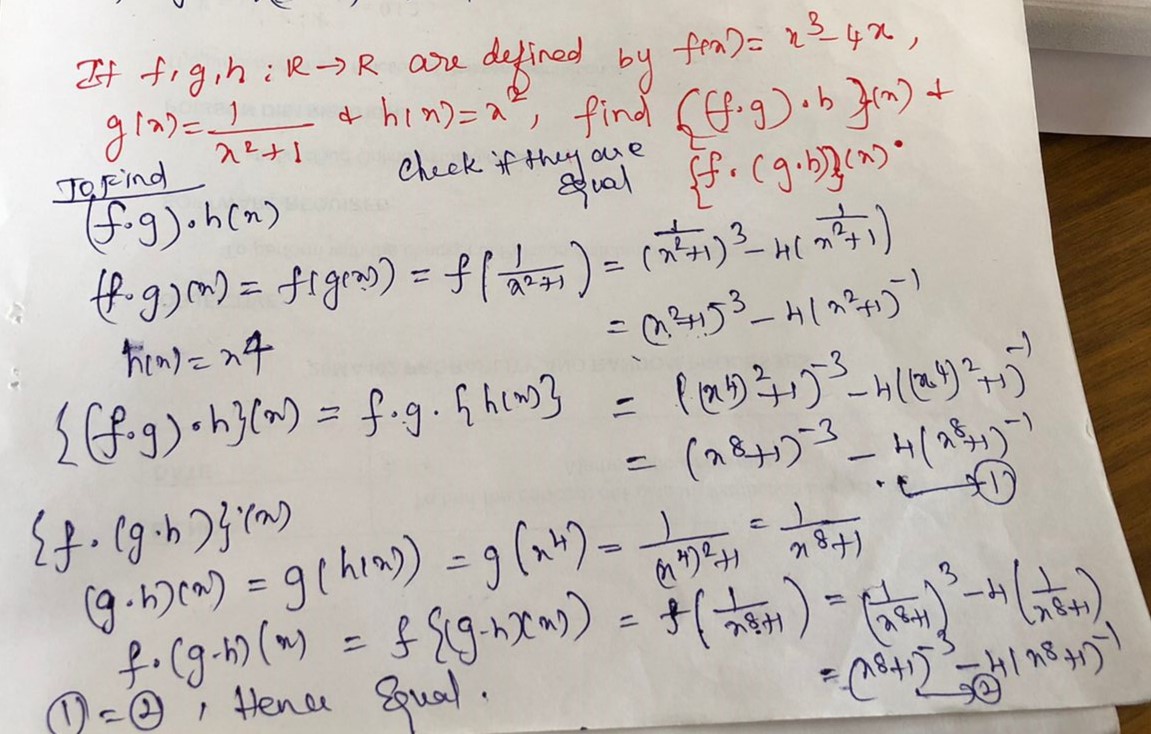 If f,g,h : R→R are defined by f(x) = x³-4x,
g(x) = 1/(x²+1) & h(x) = x², find {(f.g).h}(x) &
Check if they are Equal {f.(g.h)}(x).
To Find
(f.g).h(x)
(f.g)(x) = f(g(x)) = f(1/(x²+1)) = (1/(x²+1))³ - 4(1/(x²+1))
= (x²+1)⁻³ - 4(x²+1)⁻¹
h(x) = x4
{(f.g).h}(x) = f.g.{h(x)} = ((x⁴)²+1)⁻³ - 4((x⁴)²+1)⁻¹
= (x⁸+1)⁻³ - 4(x⁸+1)⁻¹
→①
{f.(g.h)}(x)
(g.h)(x) = g(h(x)) = g(x⁴) = 1/((x⁴)²+1) = 1/(x⁸+1)
f.(g.h)(x) = f{(g.h)(x)) = f(1/(x⁸+1)) = (1/(x⁸+1))³ - 4(1/(x⁸+1))
= (x⁸+1)⁻³ - 4(x⁸+1)⁻¹
→②
① = ②, Hence Equal.